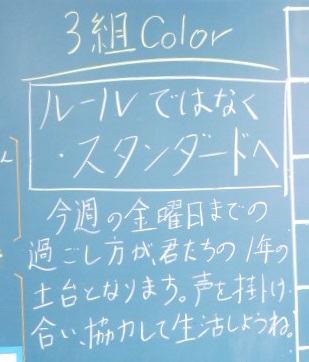 3組Color
ルールではなく
・スタンダードへ
今週の金曜日までの
過ごし方が、君たちの1年の
土台となります。声を掛け
合い、協力して生活しようね。